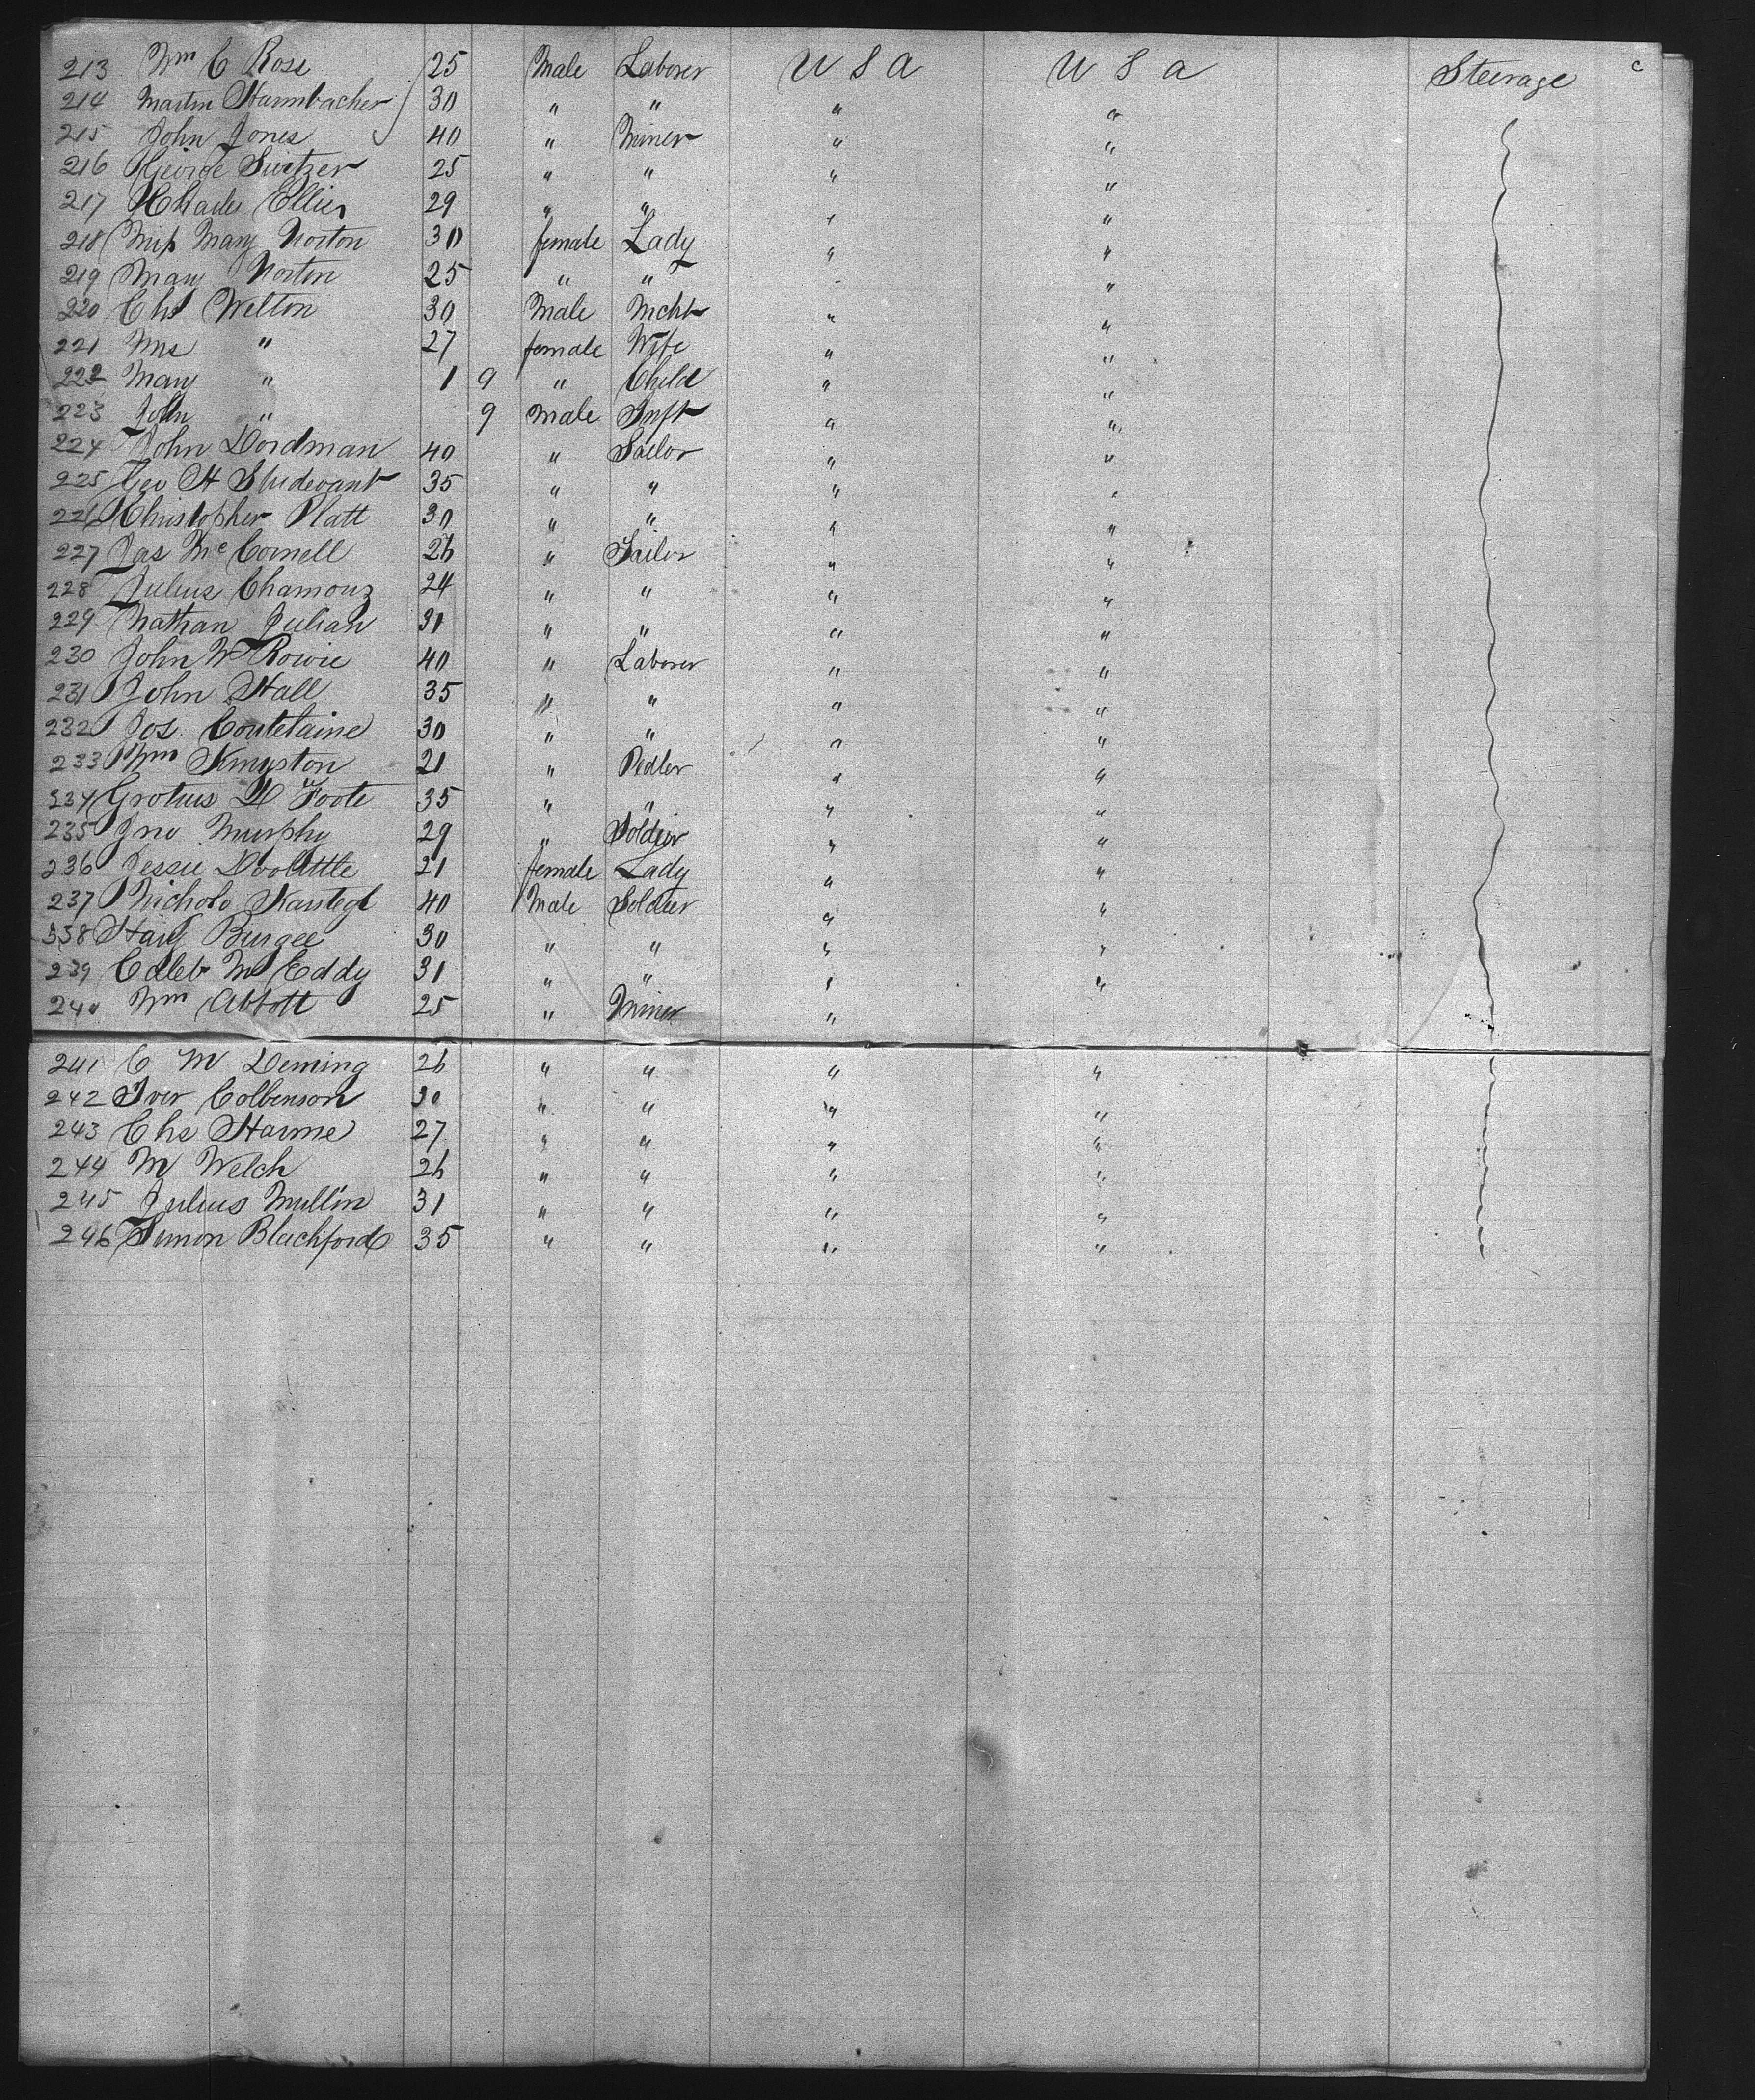 213 Wm C Rose 25 Male Laborer U S A U S A Steerage
214 Martin Harmbacher 30 " " " "
215 John Jones 40 " Miner " "
216 George Switzer 25 " " " "
217 Charles Ellis 29 " " " "
218 Miss Mary Norton 30 female Lady " "
219 Mary Norton 25 " " " "
220 Chs Welton 30 Male Mcht " "
221 Mrs " 27 female Wife " "
222 Mary " 1 9 " Child " "
223 John " 9 Male Inft " "
224 John Dordman 40 " Sailor " "
225 Geo H Studevant 35 " " " "
226 Christopher Platt 30 " " " "
227 Jas McConnell 26 " Sailor " "
228 Julius Chamouz 24 " " " "
229 Nathan Julian 31 " " " "
230 John W Rowie 40 " Laborer " "
231 John Hall 35 " " " "
232 Jos. Coutetaine 30 " " " "
233 Wm Kingston 21 " Pedler " "
234 Grotius D Foote 35 " " " "
235 Jno Murphy 29 " Soldier " "
236 Jessie Doolittle 21 female Lady " "
237 Nicholo 40 Male Soldier " "
338 Burgee 30 " " " "
239 Caleb M Eddy 31 " " " "
240 Wm Abbott 25 " Miner "
241 C M Deming 26 " " " "
242 Iver Colbenson 30 " " " "
243 Chs Harme 27 " " " "
244 M Welch 26 " " " "
245 Julius Mullin 31 " " " "
246 Simon Blachford 35 " " " "